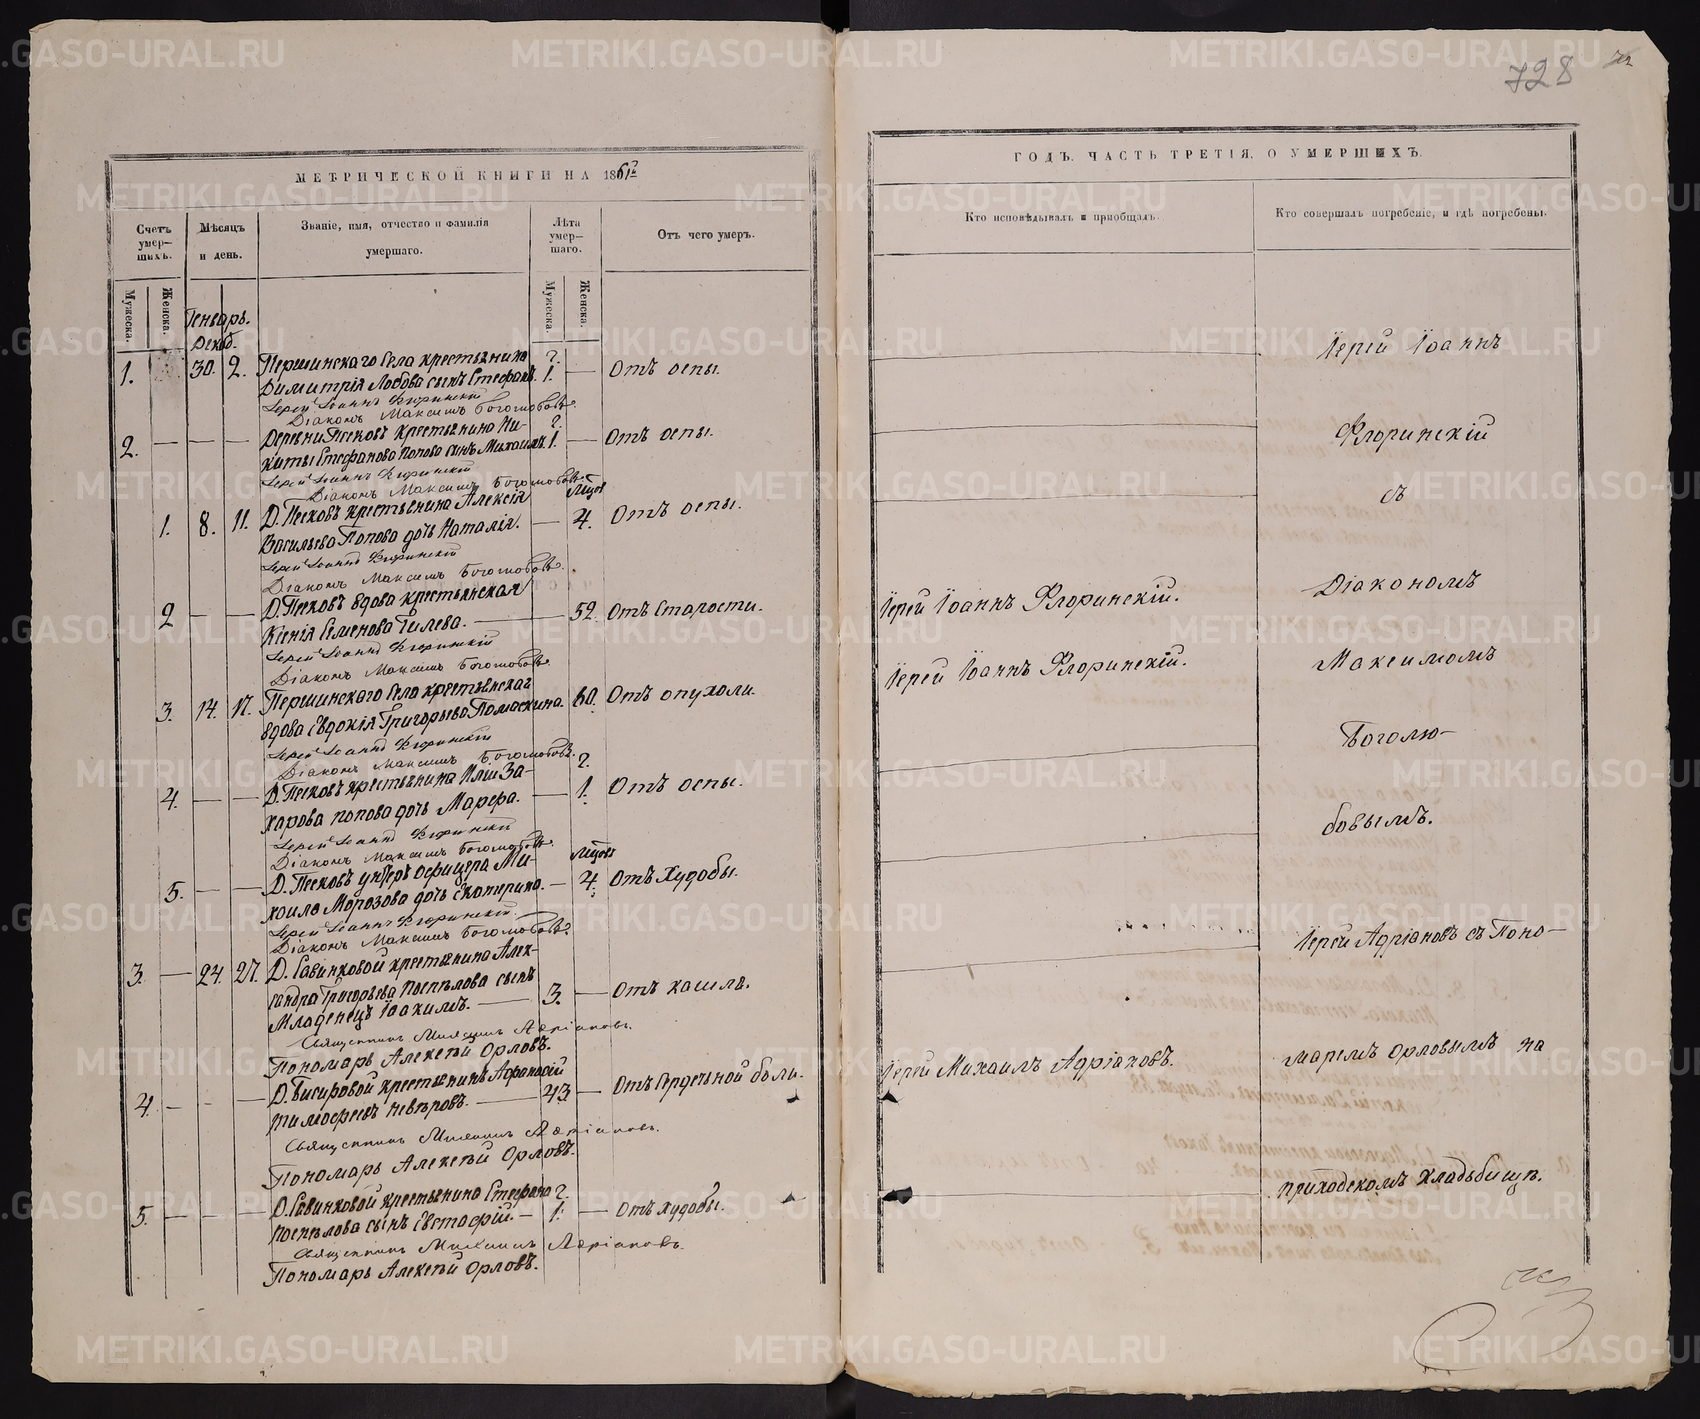 728
МЕТРИЧЕСКОЙ КНИГИ НА 1861г
Счетъ умер-шихъ.
Мѣсяцъ и день.
Званіе, имя, отчество и фамилія умершаго.
Лѣта умер-шаго.
Отъ чего умеръ.
Мужеска.
Женска.
Мужеска.
Женска.
Генварь.
Декаб.
1. 30. 2. Першинскаго села крестьянина г. 1. — Отъ оспы.
Димитрія Лобова сынъ Стефанъ.
Іерей Іоаннъ Флоринскій
Діаконъ Максимъ Боголюбовъ.
2. — — — Деревни Песковъ крестьянина Ни- г. 1. — Отъ оспы.
киты Стефанова Попова сынъ Михаилъ.
Іерей Іоаннъ Флоринскій
Діаконъ Максимъ Боголюбовъ.
1. 8. 11. Д. Песковъ крестьянина Алексія — 4. Отъ оспы.
Васильева Попова дочь Наталія.
Іерей Іоаннъ Флоринскій
Діаконъ Максимъ Боголюбовъ.
2 — — Д. Песковъ вдова крестьянская — 52. Отъ старости.
Ксенія Семенова Гилева.
Іерей Іоаннъ Флоринскій
Діаконъ Максимъ Боголюбовъ
3. 14. 17. Першинскаго села крестьянская 60. Отъ опухоли.
вдова Евдокія Григорьева Помаскина.
Іерей Іоаннъ Флоринскій
Діаконъ Максимъ Боголюбовъ.
4. — — Д. Песковъ крестьянина Иліи За- — г. 1. Отъ оспы.
харова Попова дочь Марѳа.
Іерей Іоаннъ Флоринскій
Діаконъ Максимъ Боголюбовъ.
5. — — Д. Песковъ унтеръ офицера Ми- — 4. Отъ худобы.
хаила Морозова дочь Екатерина.
Іерей Іоаннъ Флоринскій.
Діаконъ Максимъ Боголюбовъ.
3. — 24. 27. Д. Савинковой крестьянина Алек-
сандра Григорьева Поспѣлова сынъ
Младенецъ Іоакимъ. — 3. — Отъ кашля.
Священникъ Михаилъ Адріановъ.
Пономарь Алексѣй Орловъ.
4. — — — Д. Бисировой крестьянинъ Афанасій
Тимофеевъ Невѣровъ. — 43 — Отъ сердечной боли.
Священникъ Михаилъ Адріановъ.
Пономарь Алексѣй Орловъ.
5. — — — Д. Савинковой крестьянина Стефана г.
Поспѣлова сынъ Евстафій. — 1. — Отъ худобы.
Священникъ Михаилъ Адріановъ.
Пономарь Алексѣй Орловъ.
ГОДЪ. ЧАСТЬ ТРЕТІЯ. О УМЕРШИХЪ.
Кто исповѣдывалъ и пріобщалъ.
Кто совершалъ погребеніе, и гдѣ погребены.
Іерей Іоаннъ
Флоринскій
съ
Іерей Іоаннъ Флоринскій.
Діакономъ
Іерей Іоаннъ Флоринскій.
Максимомъ
Боголю-
бовымъ.
Іерей Адріановъ съ Поно-
Іерей Михаилъ Адріановъ.
маремъ Орловымъ на
приходскомъ кладбищѣ.
METRIKI.GASO-URAL.RU